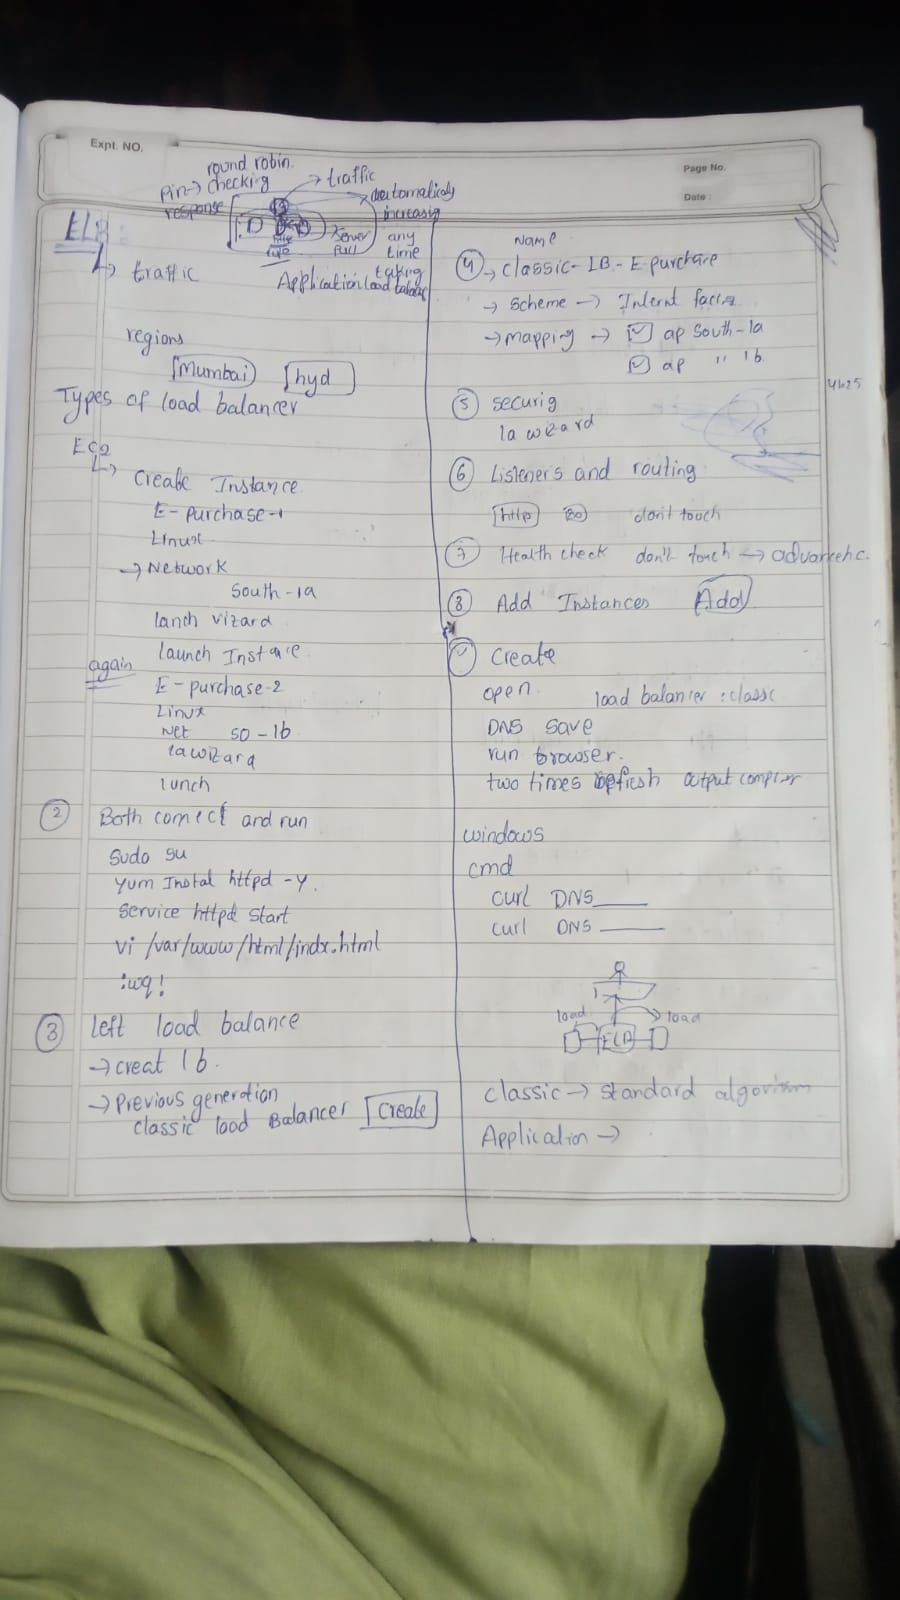 Expt. NO.
Page No.
Date :
round robin.
pin → checking → traffic
response
automaticaly
increasing
D
server
full
any
time
taking
Application load balancer
ELB :
↳ traffic
regions
Mumbai hyd
Types of load balancer
EC2
↳ Create Instance
E- purchase-1
Linux
→ Network
South-1a
lanch vizard
again launch Instance
E- purchase-2
Linux
Net so-1b
la wizard
lunch
② Both connect and run
sudo su
yum Instal httpd -y.
Service httpd start
vi /var/www/html/indx.html
:wq!
③ left load balance
→ creat lb.
→ previous generation
classic load Balancer Create
Name
④ → classic-lB.- E-purchase
→ Scheme → Internt facing
→ mapping → ☑ ap South-1a
☑ ap " 1b
⑤ securig
la wizard
4625
⑥ Listeners and routing
http 80 don't touch
⑦ Health check don't touch →
⑧ Add Instances Add
Create
open load balancer : classc
DNS save
run browser.
two times refresh output
windows
cmd
curl DNS____
curl DNS ____
load load
ELB
classic → standard algorithm
Application →